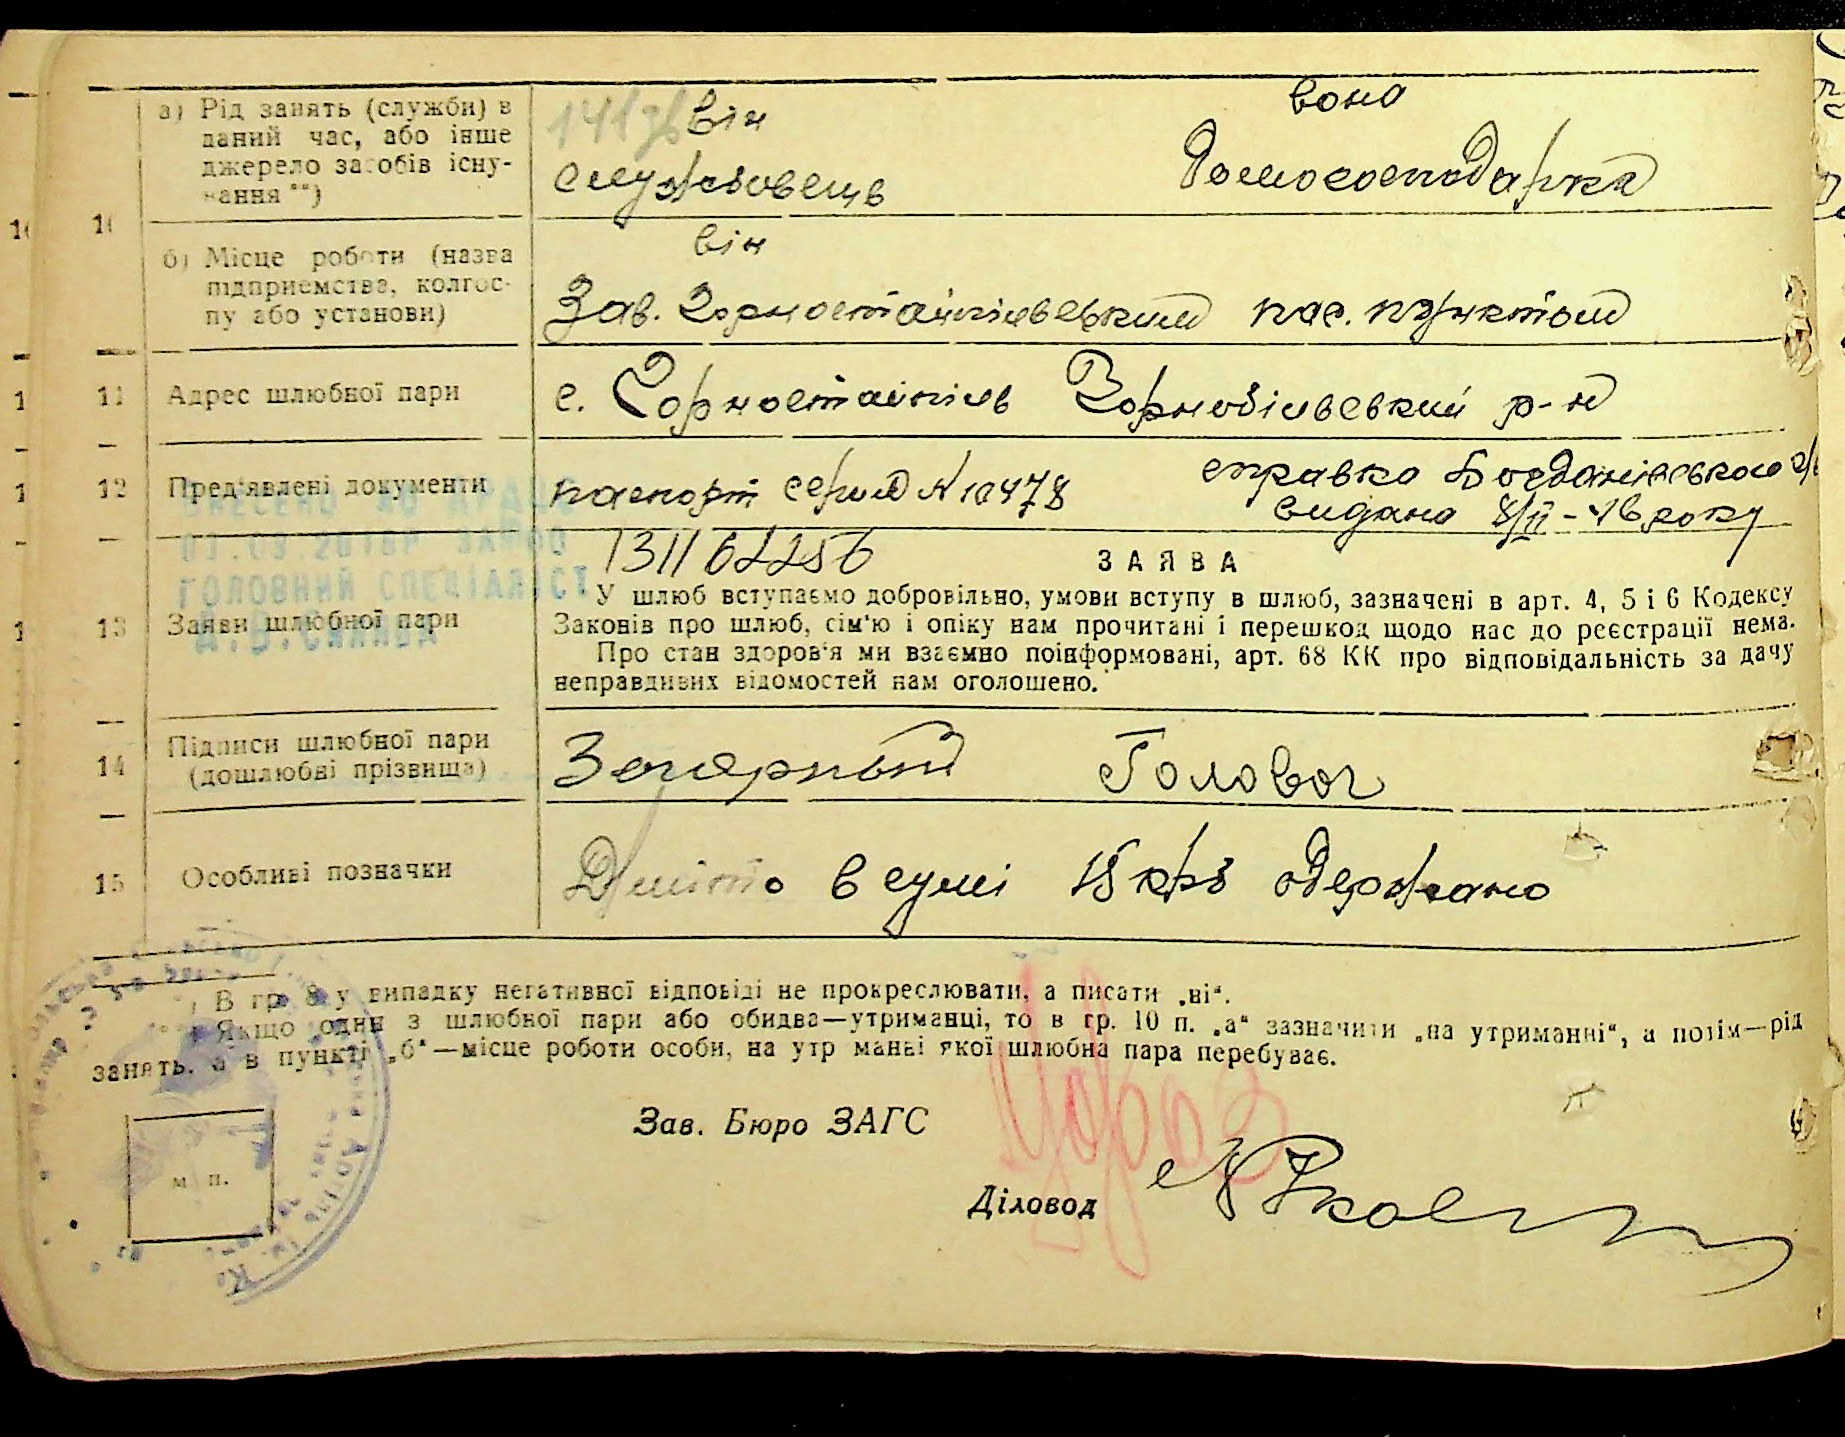 а) Рід занять (служби) в
даний час, або інше
джерело засобів існу-
вання **)
він
службовець
вона
Домогосподарка
10
б) Місце роботи (назва
підприємства, колгос-
пу або установи)
він
Зав. Горностайпільським пас. пунктом
11 Адрес шлюбної пари
с. Горностайпіль Чорнобільський р-н
12 Пред'явлені документи
паспорт серия N 10478
справка Богданівською
видана 8/II-46 року
ВНЕСЕНО ДО ДРАЦС
ГОЛОВНИЙ СПЕЦІАЛІСТ
13 Заяви шлюбної пари
ЗАЯВА
У шлюб вступаємо добровільно, умови вступу в шлюб, зазначені в арт. 4, 5 і 6 Кодексу
Законів про шлюб, сім'ю і опіку нам прочитані і перешкод щодо нас до реєстрації нема.
Про стан здоров'я ми взаємно поінформовані, арт. 68 КК про відповідальність за дачу
неправдивих відомостей нам оголошено.
14 Підписи шлюбної пари
(дошлюбні прізвища)
Головач
15 Особливі позначки
Мито в сумі 15 крб одержано
В гр. 8 у випадку негативної відповіді не прокреслювати, а писати „ні“.
Якщо один з шлюбної пари або обидва—утриманці, то в гр. 10 п. „а“ зазначити „на утриманні“, а потім—рід
занять, а в пункті „б“—місце роботи особи, на утриманні якої шлюбна пара перебуває.
Зав. Бюро ЗАГС
м. п.
Діловод